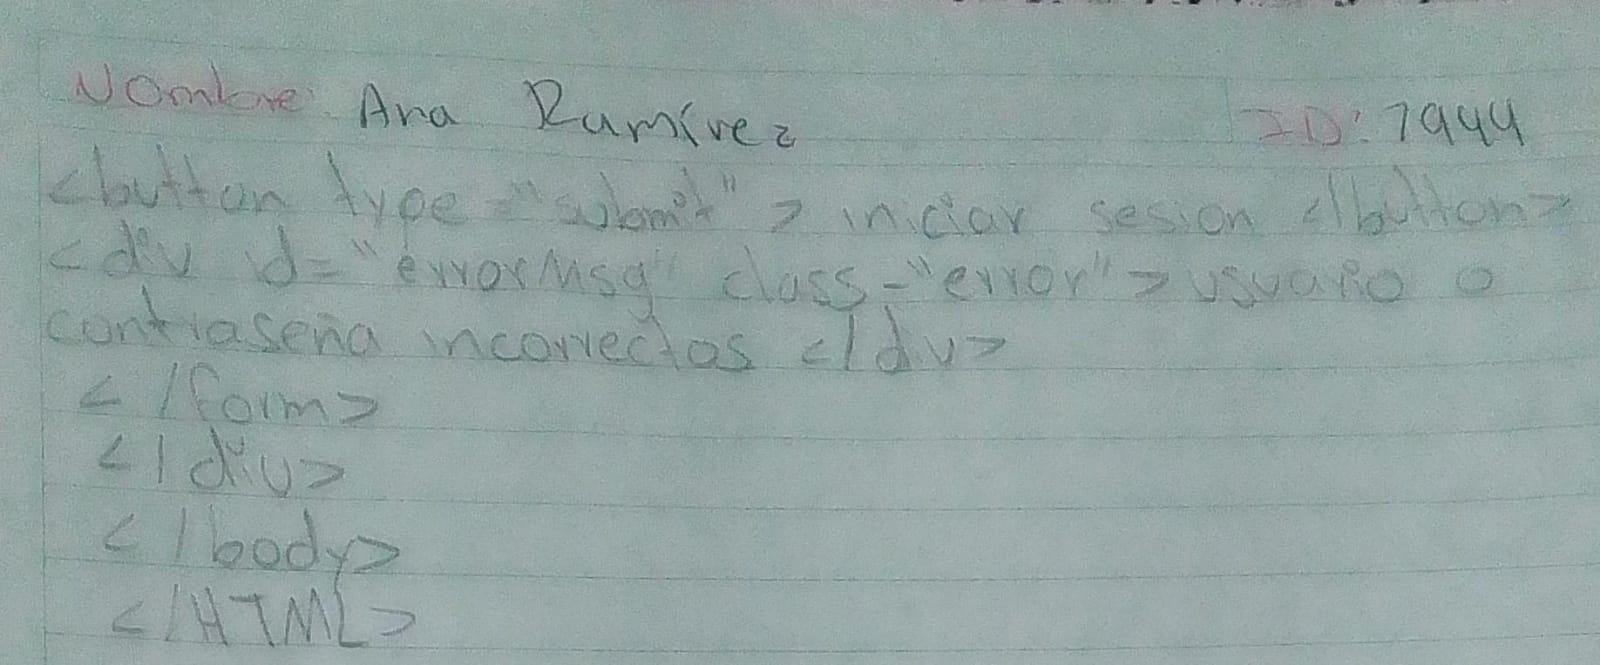 Nombre: Ana Ramírez ID: 7944
<button type="submit" > iniciar sesion </button>
<div id="errorMsg" class="error" > usuario o
contraseña incorrectos </div>
</form>
</div>
</body>
</HTML>